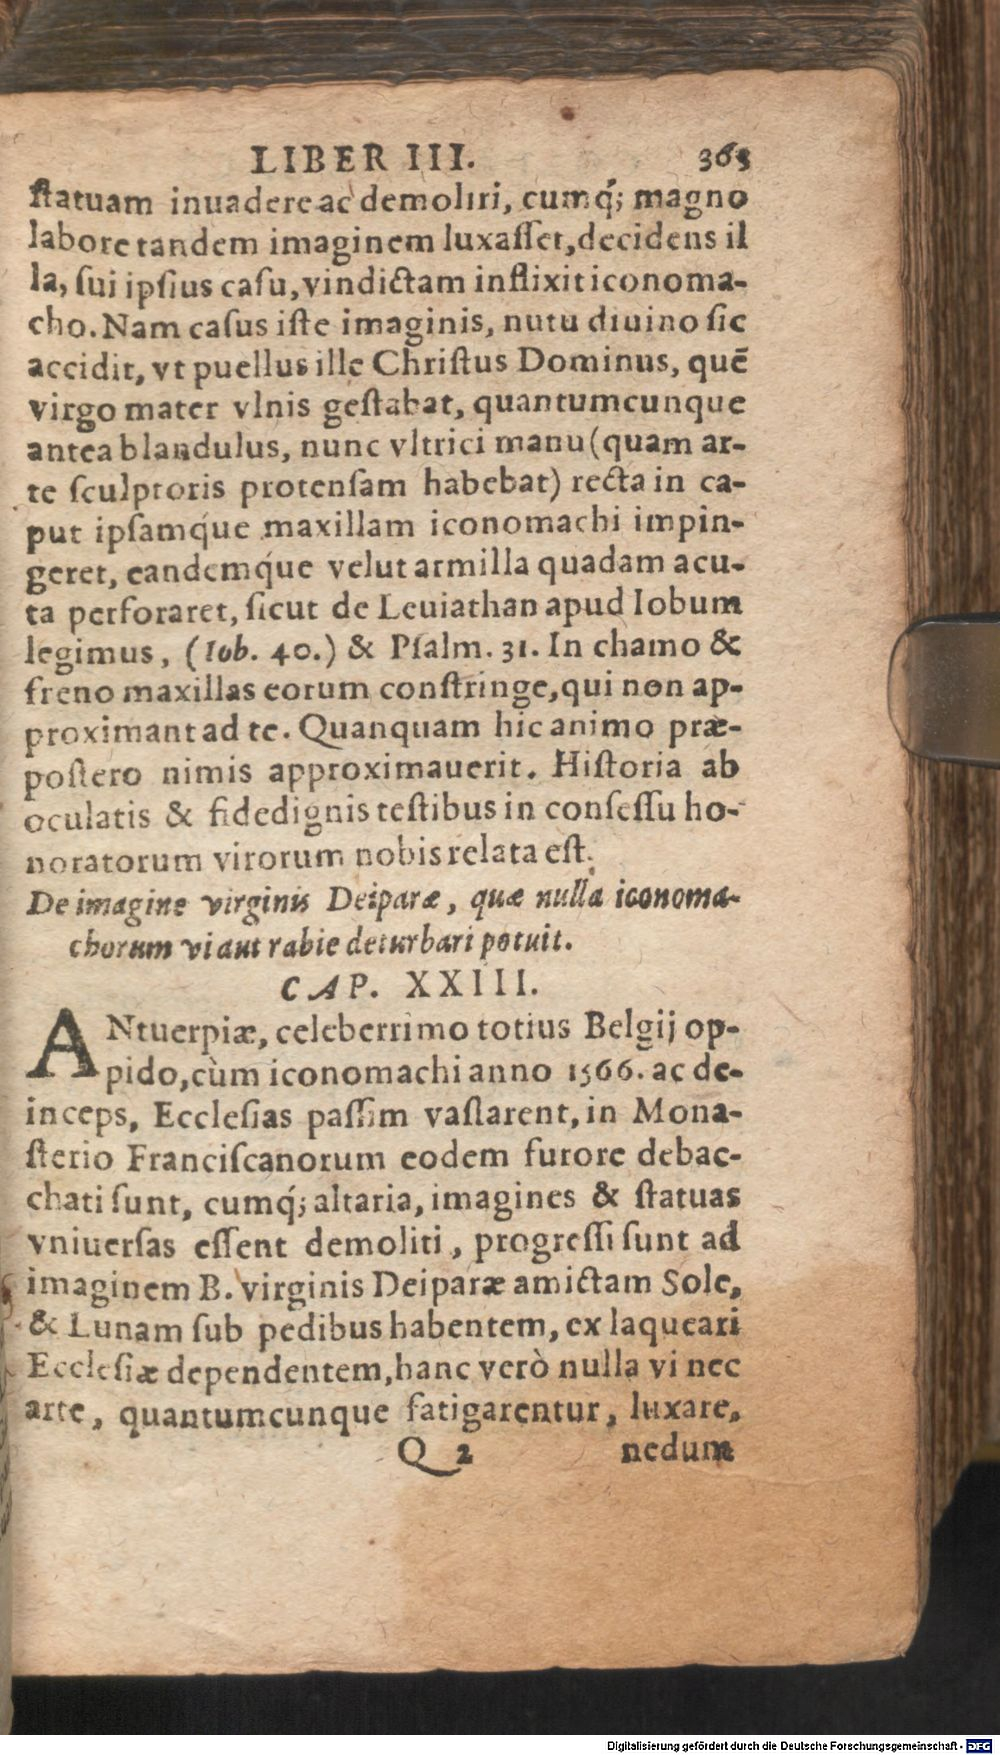 LIBER III. 363
ſtatuam inuadere ac demoliri, cumq́; magno
labore tandem imaginem luxaſſet, decidens il
la, ſui ipſius caſu, vindictam inflixit iconoma-
cho. Nam caſus iſte imaginis, nutu diuino ſic
accidit, vt puellus ille Chriſtus Dominus, quē
virgo mater vlnis geſtabat, quantumcunque
antea blandulus, nunc vltrici manu (quam ar-
te ſculptoris protenſam habebat) recta in ca-
put ipſamq́ue maxillam iconomachi impin-
geret, eandemq́ue velut armilla quadam acu-
ta perforaret, ſicut de Leuiathan apud Iobum
legimus, (Iob. 40.) & Pſalm. 31. In chamo &
freno maxillas eorum conſtringe, qui non ap-
proximant ad te. Quanquam hic animo præ-
poſtero nimis approximauerit. Hiſtoria ab
oculatis & fidedignis teſtibus in conſeſſu ho-
noratorum virorum nobis relata eſt.
De imagine virginis Deiparæ, quæ nulla iconoma-
chorum vi aut rabie deturbari potuit.
CAP. XXIII.
ANtuerpiæ, celeberrimo totius Belgij op-
pido, cùm iconomachi anno 1566. ac de-
inceps, Eccleſias paſſim vaſtarent, in Mona-
ſterio Franciſcanorum eodem furore debac-
chati ſunt, cumq́; altaria, imagines & ſtatuas
vniuerſas eſſent demoliti, progreſſi ſunt ad
imaginem B. virginis Deiparæ amictam Sole,
& Lunam ſub pedibus habentem, ex laqueari
Eccleſiæ dependentem, hanc verò nulla vi nec
arte, quantumcunque fatigarentur, luxare,
Q 2 nedum
Digitalisierung gefördert durch die Deutsche Forschungsgemeinschaft - DFG